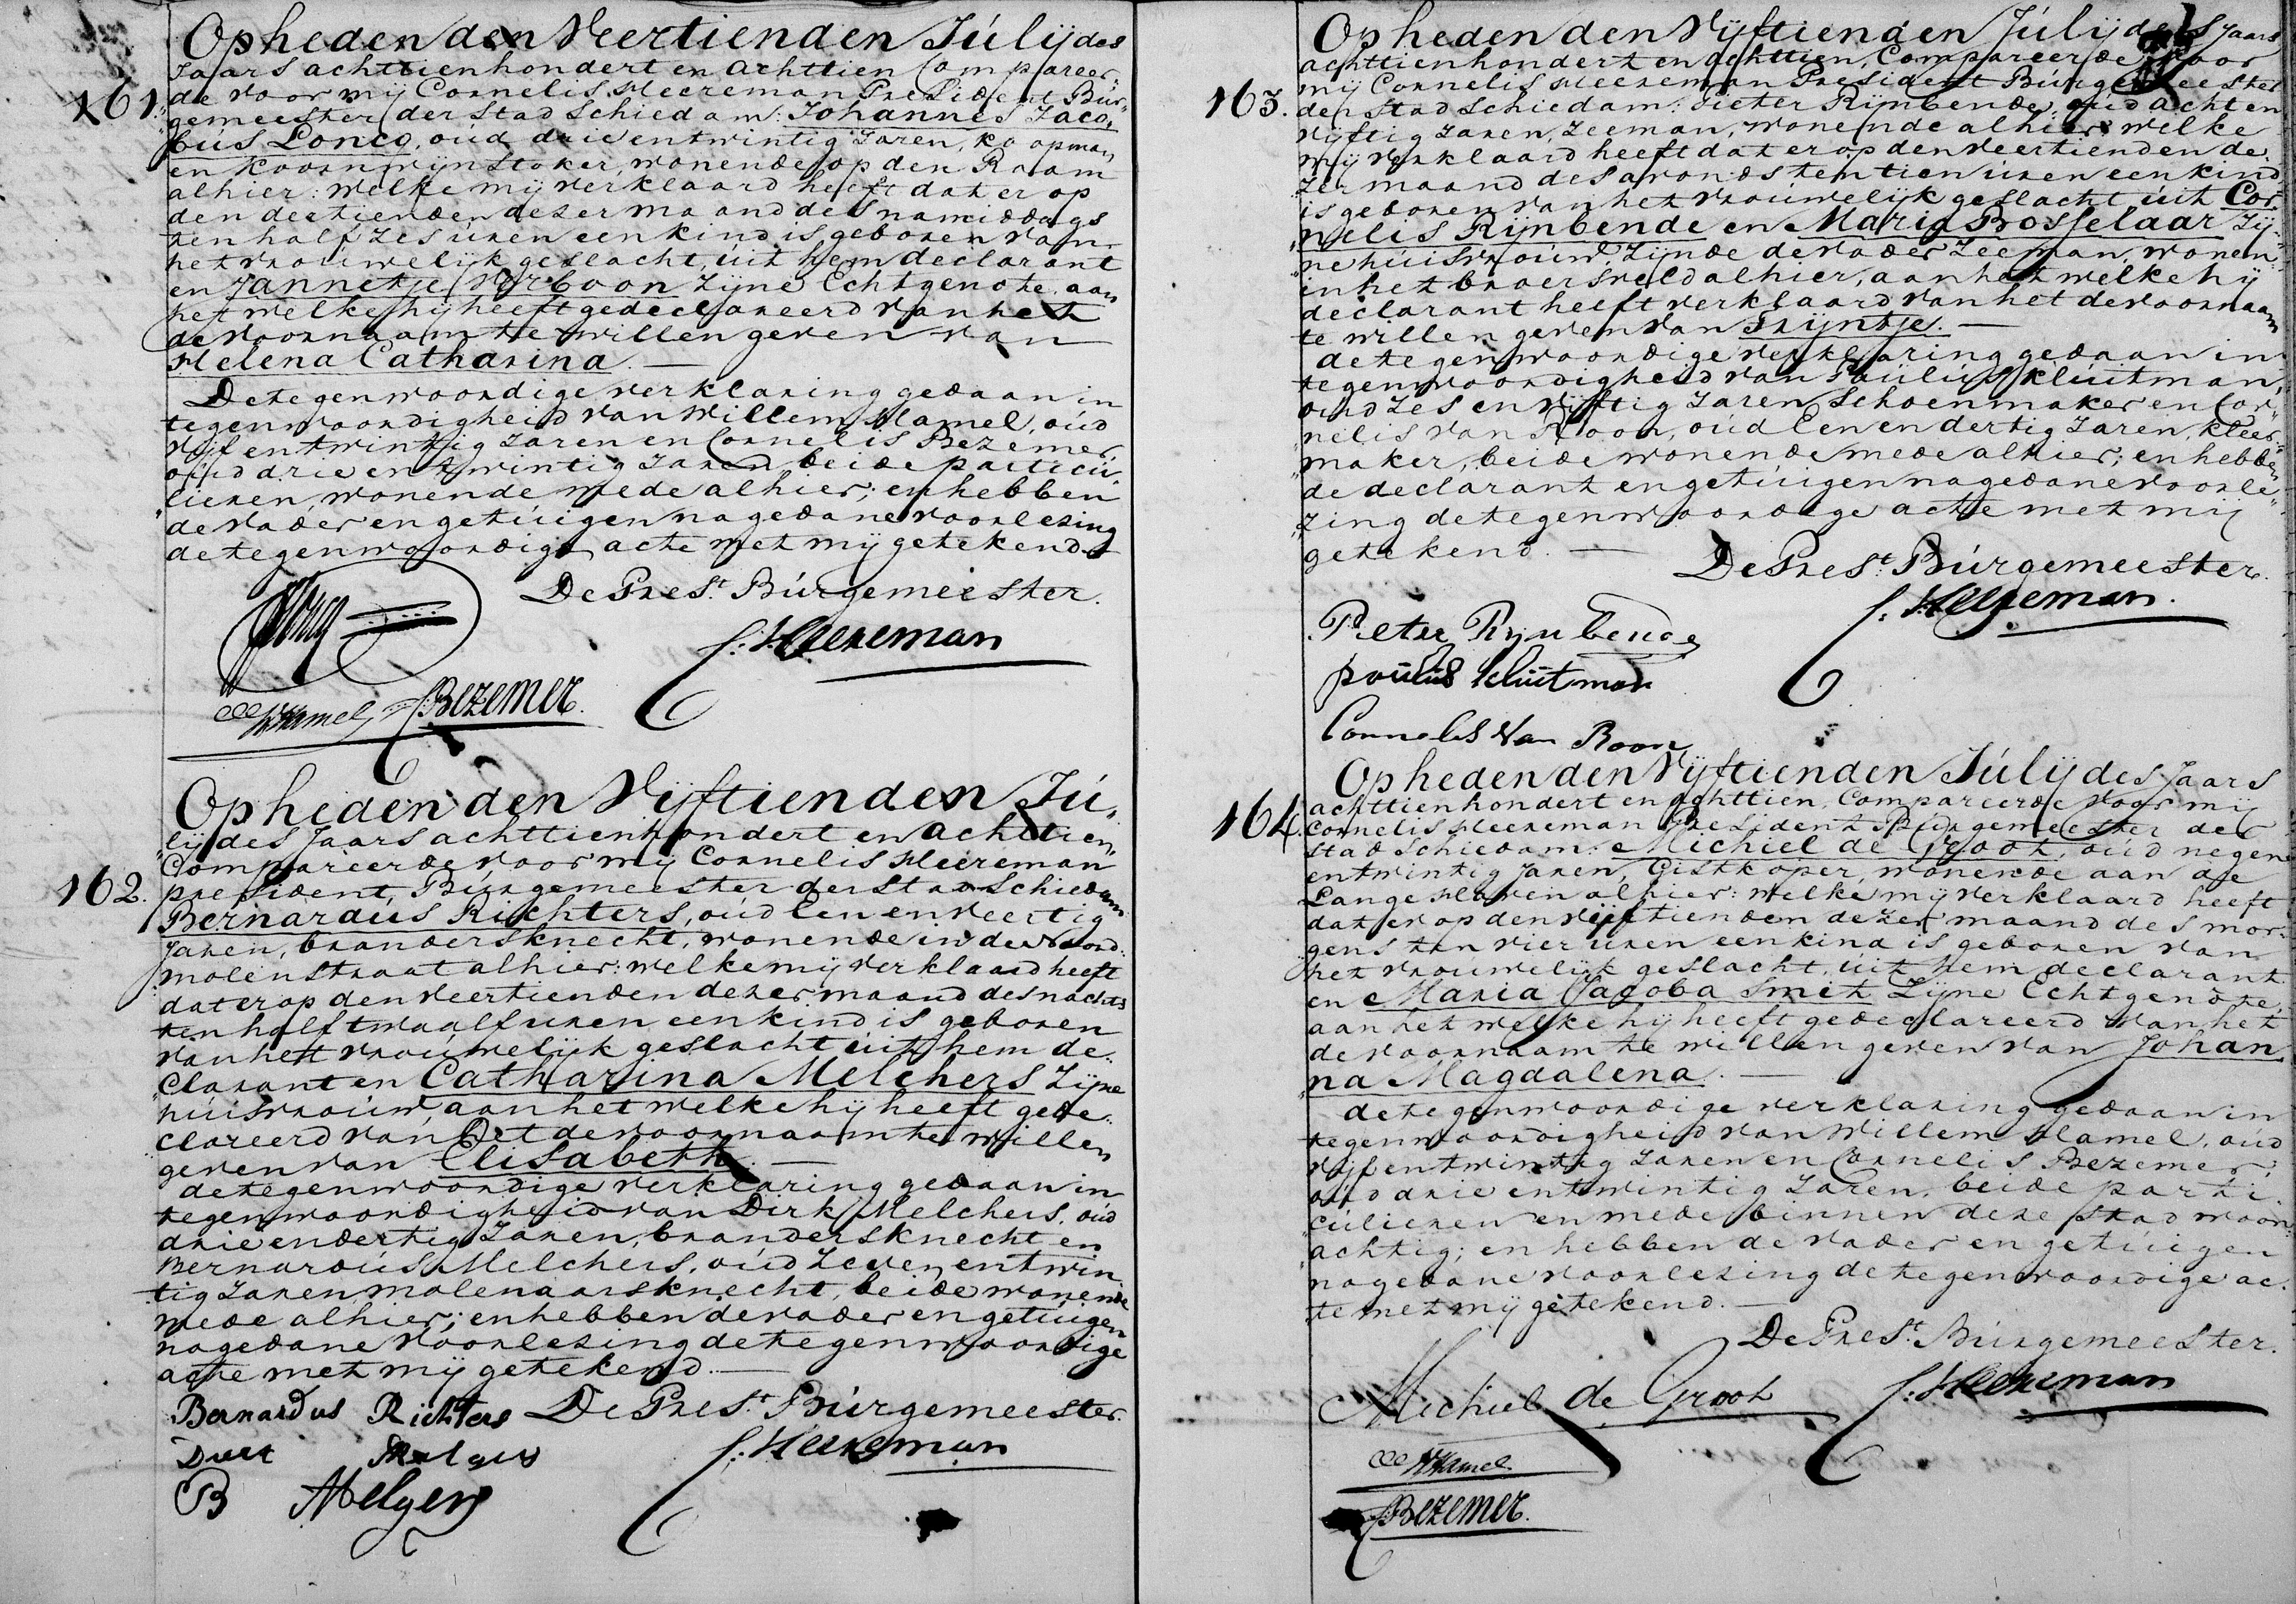 Op heden den Veertienden Júlij des
Jaars achttienhondert en achttien Compareer„
161. de voor mij Cornelis Heereman President Bur„
gemeester der stad Schiedam: Johannes Jaco„
bús Loncq, oúd drie entwintig Jaren, koopman
en koornwijnstoker, wonende op den Raam
alhier: welke mij verklaard heeft dat er op
den dertienden dezer maand des namiddags
ten half zes úren een kind is geboren van
het vroúwelijk geslacht, úit hem declarant
en Jannetje Verboon zijne Echtgenote, aan
het welke hij heeft gedeclareerd van het
de voornaam te willen geven van
Helena Catharina. —
De tegenwoordige verklaring gedaan in
tegenwoordigheid van Willem Hamel, oúd
vijf entwintig Jaren en Cornelis Bezemer,
oúd drie entwintig Jaren beide particú„
lieren, wonende mede alhier; en hebben
de vader en getúigen na gedane voorlezing
de tegenwoordige acte met mij getekend.
De Prest. Búrgemeester.
C: Heereman
WHamel
CBezemer.
Op heden den Vijftienden Jú„
lij des Jaars achttienhondert en achttien,
Compareerde voor mij Cornelis Heereman
162. president, Búrgemeester der stad Schiedam
Bernardus Richters, oúd Een en veertig
Jaren, brandersknecht, wonende in de Noord„
molenstraat alhier: welke mij verklaard heeft
dat er op den veertienden dezer maand des nachts
ten half twaalf uren een kind is geboren
van het vroúwelijk geslacht uit hem de„
clarant en Catharina Melchers zijne
húisvroúw, aan het welke hij heeft gede„
clareerd van het de voornaam te willen
geven van Elisabeth. —
de tegenwoordige verklaring gedaan in
tegenwoordigheid van Dirk Melchers, oúd
drie en dertig Jaren, brandersknecht en
Bernardús Melchers, oúd zeven entwin„
tig Jaren molenaarsknecht, beide wonende
mede alhier; en hebben de vader en getúigen
na gedane voorlezing de tegenwoordige
acte met mij getekend. —
Bernardus Richters De Prest. Búrgemeester.
C: Heereman
B Melgers
Op heden den Vijftienden Júlij des Jaars
achttienhondert en achttien, Compareerde voor
mij Cornelis Heereman President Búrgemeester
163. der stad Schiedam: Pieter Rijnbende, oúd acht en
vijftig Jaren, Zeeman, wonende alhier: welke
mij verklaard heeft dat er op den veertienden de„
zer maand des avonds ten tien úren een kind
is geboren van het vroúwelijk geslacht úit Cor„
nelis Rijnbende en Maria Bosselaar zij„
ne húisvroúw, zijnde de vader Zeeman, wonen„
in het broersveld alhier, aan het welke hij
declarant heeft verklaard van het de voornaam
te willen geven van Trijntje. —
de tegenwoordige verklaring gedaan in
tegenwoordigheid van Paúlús Klúitman,
oúd zes en vijftig Jaren Schoenmaker en Cor„
nelis van Roon, oúd Een en dertig Jaren, kleer„
maker, beide wonende mede alhier; en hebben
de declarant en getúigen na gedane voorle„
zing de tegenwoordige acte met mij
getekend. —
De Prest. Búrgemeester.
C: Heereman.
Pieter Rijnbende
poulus kluitman
Cornelis Van Roon
Op heden den Vijftienden Júlij des Jaars
achttienhondert en achttien, Compareerde voor mij
164. Cornelis Heereman President Búrgemeester der
stad Schiedam: Michiel de Groot, oúd negen
entwintig Jaren, Gistkoper, wonende aan de
Lange Haven alhier: welke mij verklaard heeft
dat er op den vijftienden dezer maand des mor„
gens ten vier úren een kind is geboren van
het vroúwelijk geslacht, úit hem declarant
en Maria Jacoba Smit zijne Echtgenote,
aan het welke hij heeft gedeclareerd van het
de voornaam te willen geven van Johan„
na Magdalena. —
de tegenwoordige verklaring gedaan in
tegenwoordigheid van Willem Hamel, oúd
vijf entwintig Jaren en Cornelis Bezemer,
oúd drie entwintig Jaren, beide parti„
cúlieren en mede binnen deze stad woon„
achtig; en hebben de vader en getúigen
na gedane voorlezing de tegenwoordige ac„
te met mij getekend. —
De Prest. Búrgemeester.
Michiel de Groot
C: Heereman
WHamel
CBezemer.